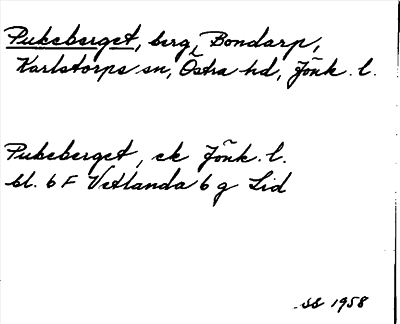 Pukeberget, berg, Bondarp,
Karlstorps sn, Östra hd, Jönk. l.
Pukeberget, ek Jönk. l.
bl. 6 F Vetlanda 6 g Lid
SS 1958